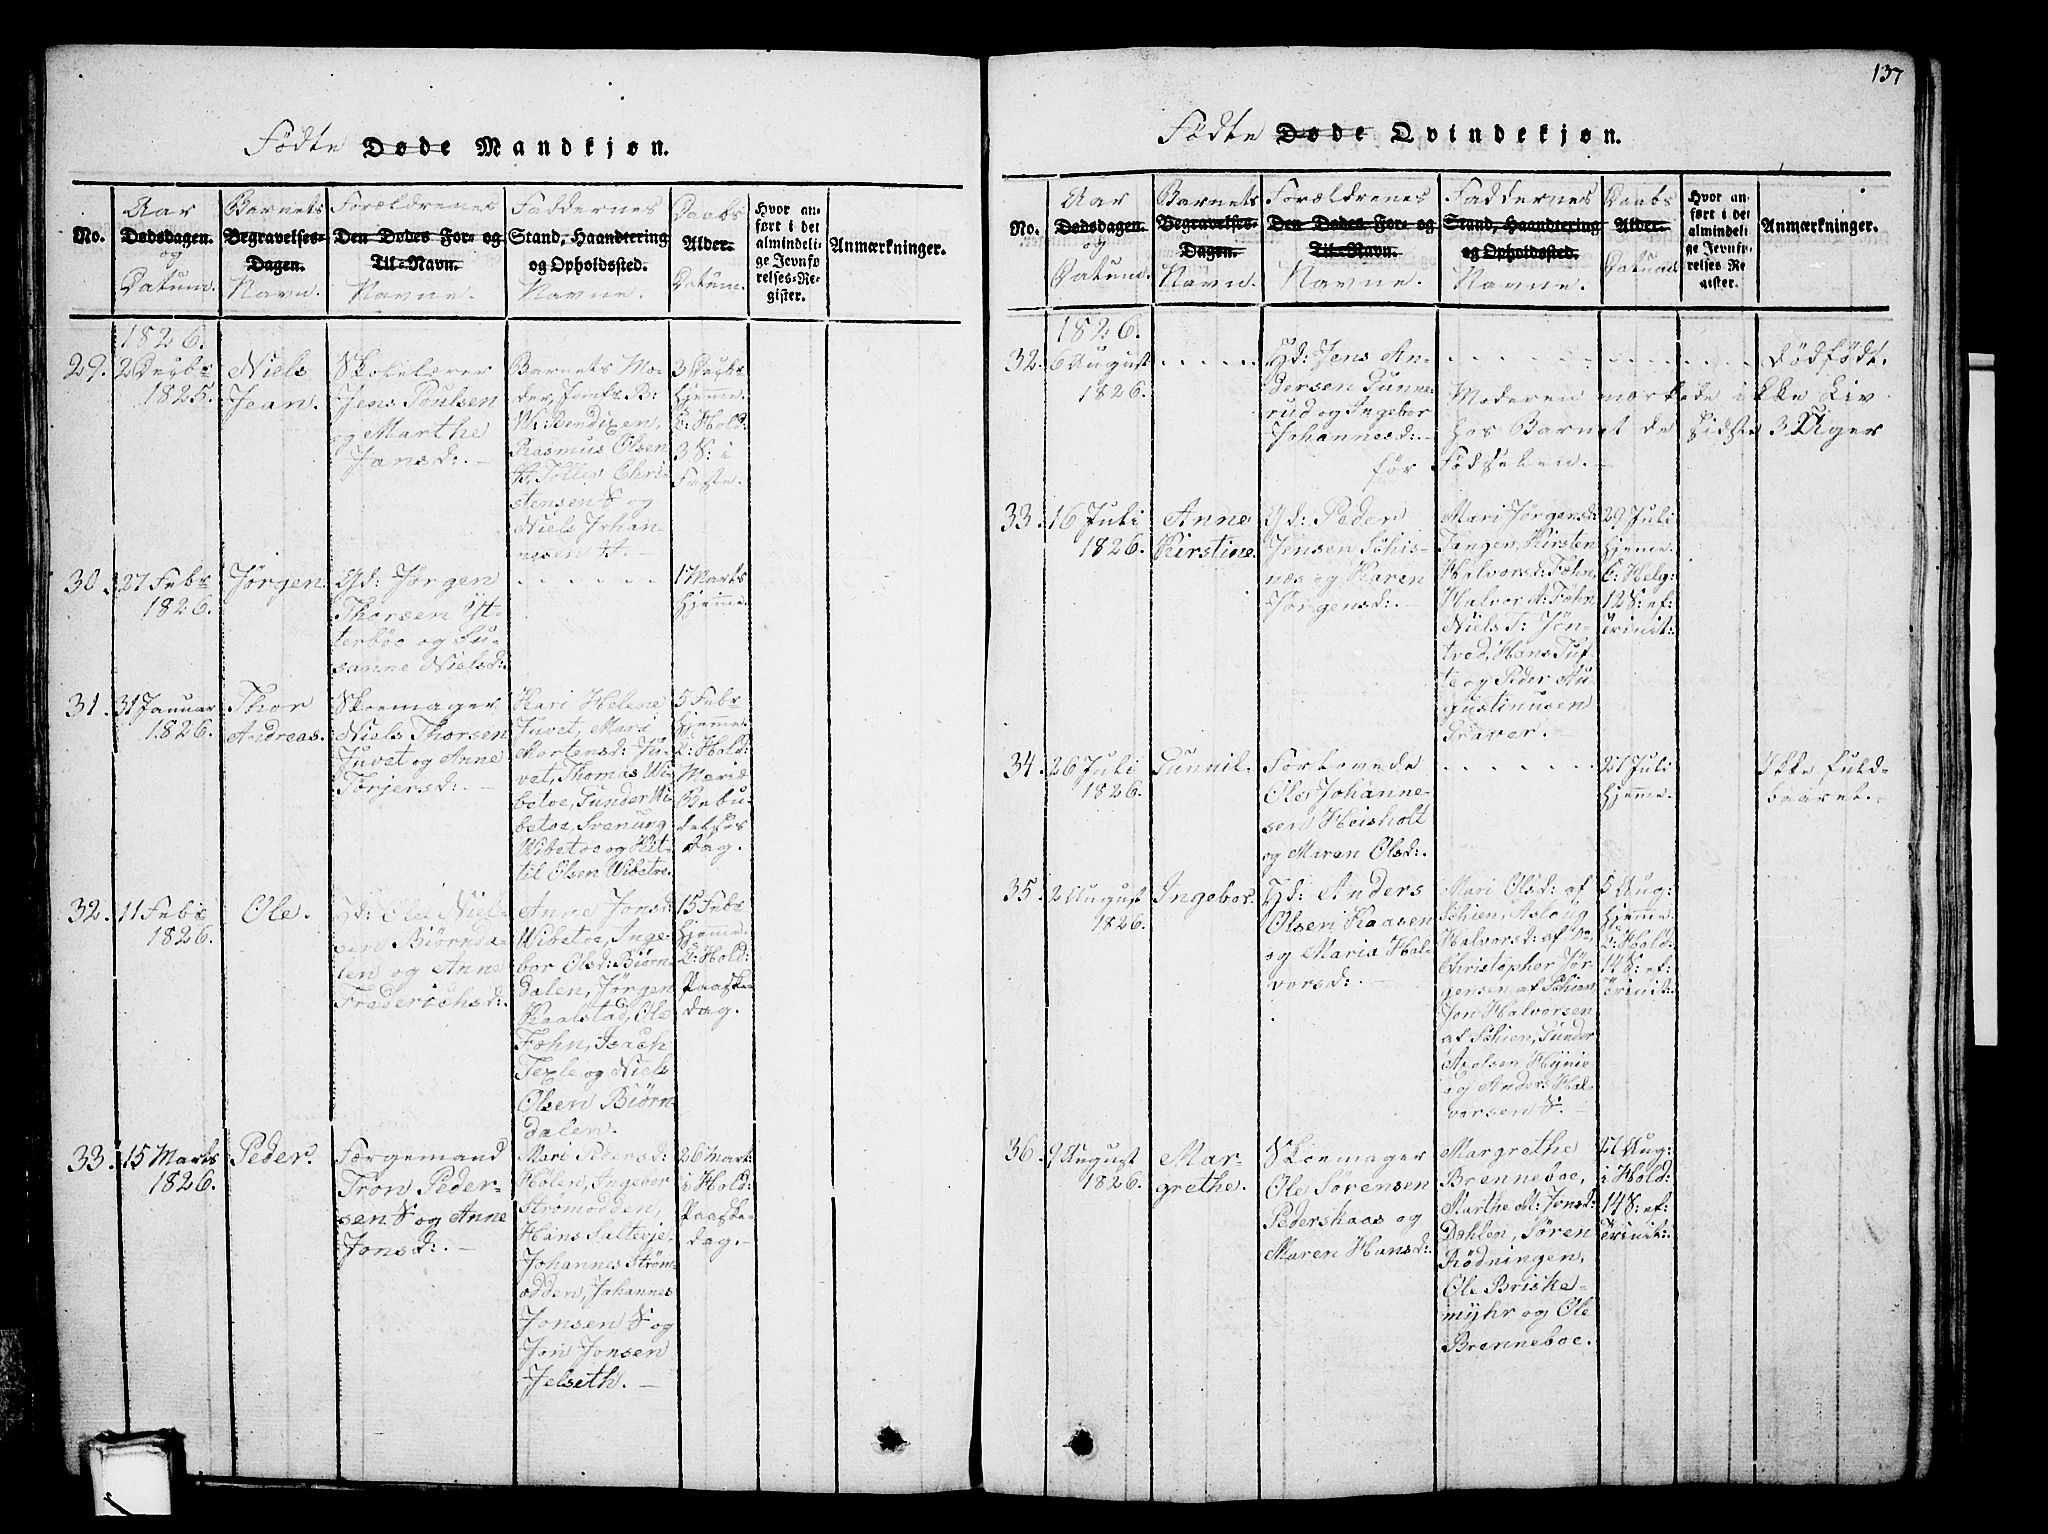 137
Födte Døde Mandkjøn.
No.
Aar
Dødsdagen.
og
Datum.
Barnets
Begravelses-
Dagen.
Navn.
Forældrenes
Den Dødes For- og
Til-Navn.
Navne.
Faddernes
Stand, Haandtering
og Opholdssted.
Navne.
Daabs
Alder.
Datum.
Hvor an-
ført i det
almindeli-
ge Jevnfø-
relses-Re-
gister.
Anmærkninger.
1826.
29.
2 Decbr
1825.
Niels
Jean.
Skolelærer
Jens Poulsen
og Marthe
Jansd:.-
Barnets Mo-
der, Jomfr B:
W: Bendixen,
Rasmus Olsen
H, Tollev Chri-
stensen S og
Niels Johan-
nesen H.-
3 Decbr
hjemme.
C: Hold:
3 S: i
Faste.
30.
27 Febr
1826.
Jørgen.
Gd: Jørgen
Thorsen Yt-
terböe og Su-
sanne Nielsd:.
1 Marts
hjemme.
31.
31 Januar
1826.
Thor
Andreas.
Skoemager
Niels Thorsen
Juvet og Anne
Torjersd:.-
Kari Helene
Juvet, Mari
Mortensd: Ju-
vet, Thomas Wi-
betoe, Gunder Wi-
betoe, Svenung
Wibetoe og Kit-
til Olsen Wibetoe.
5 Febr
hjemme.
C: Hold:
Mariæ
Bebu-
delses
dag.
32.
11 Febr
1826.
Ole.
Hd: Ole Niel-
sen Biørnda-
len og Anne
Frederichsd:.
Anne Jonsd:
Wibetoe, Inge-
bor Olsd: Biørn-
dalen, Jørgen
Kaalstad, Ole
Foehn, Isach
Texle og Niels
Olsen Biørn-
dalen.
15 Febr
hjemme.
C: Hold:
Paaske-
dag.
33.
15 Marts
1826.
Peder.
Færgemand
Tron Peder-
sen S og Anne
Jonsd:.-
Mari Pedersd:
Hølen, Ingebor
Strömodden,
Hans Saltevje,
Johannes Ström-
odden, Johannes
Jonsen S og
Jon Jonsen
Jelseth.-
26 Mart:
i Hold:
Paaske-
dag.-
Födte Døde Qvindekjøn.
No.
Aar
Dødsdagen.
og
Datum.
Barnets
Begravelses-
Dagen.
Navn.
Forældrenes
Den Dødes For- og
Til-Navn.
Navne.
Faddernes
Stand, Haandtering
og Opholdssted.
Navne.
Daabs
Alder.
Datum.
Hvor an-
ført i det
almindeli-
ge Jevnfø-
relses Re-
gister.
Anmærkninger.
1826.
32.
6 August
1826.
Hd: Jens An-
dersen Gunne-
rud og Ingebor
Johannesd:.-
Dödfödt.
Moderen mærkede ikke Liv
hos Barnet de sidste 3 Uger
för Födselen.-
33.
16 Juli
1826.
Anne
Kirstine.
Gd: Peder
Jensen Schis-
næs og Karen
Jörgensd:.-
Mari Jørgensd:
Tangen, Kirsten
Halvorsd: Foehn,
Halvor A: Foehn,
Niels J: Jøn-
tved, Hans Tuf-
te og Peder Au-
gustinusen
Graver.-
29 Juli
hjemme.
C: Helg:
12 S: ef:
Trinit:
34.
26 Juli
1826.
Gunnil.
Forlovede
Ole Johanne-
sen Heisholt
og Maren Olsd:.
27 Juli
hjemme.
Ikke fuld-
baaret.-
35.
2 August
1826.
Ingebor.
Hd: Anders
Olsen Kaasen
og Maria Hal-
vorsd:.-
Mari Olsd: af
Schien, Aslaug
Halvorsd: af do,
Christopher Jör-
gensen af Schien,
Jon Halvorsen
af Schien, Gunder
Axelsen Hynie
og Anders Hal-
vorsen S.-
5 Aug:
hjemme.
C: Hold:
14 S: ef:
Trinit:.
36.
9 August
1826.
Mar-
grethe.
Skoemager
Ole Sørensen
Pederskaas og
Maren Hansd:.
Margrethe
Brenneboe,
Marthe M: Jonsd:
Dahlen, Søren
Rödningen,
Ole Briske-
myhr og Ole
Brenneboe.
27 Aug:
i Hold:
14 S: ef:
Trinit:.